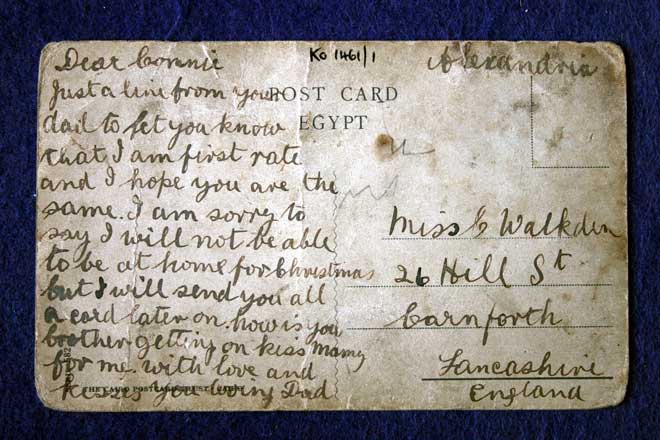 Ko 1461/1
Alexandria
POST CARD
EGYPT
Dear Connie
Just a line from your
dad to let you know
that I am first rate
and I hope you are the
same. I am sorry to
say I will not be able
to be at home for Christmas
but I will send you all
a card later on. how is you
brother getting on kiss Mamy
for me. with love and
kisses you loving Dad
Miss C Walkden
26 Hill St
Carnforth
Lancashire
England
THE CAIRO POSTCARD TRUST, CAIRO